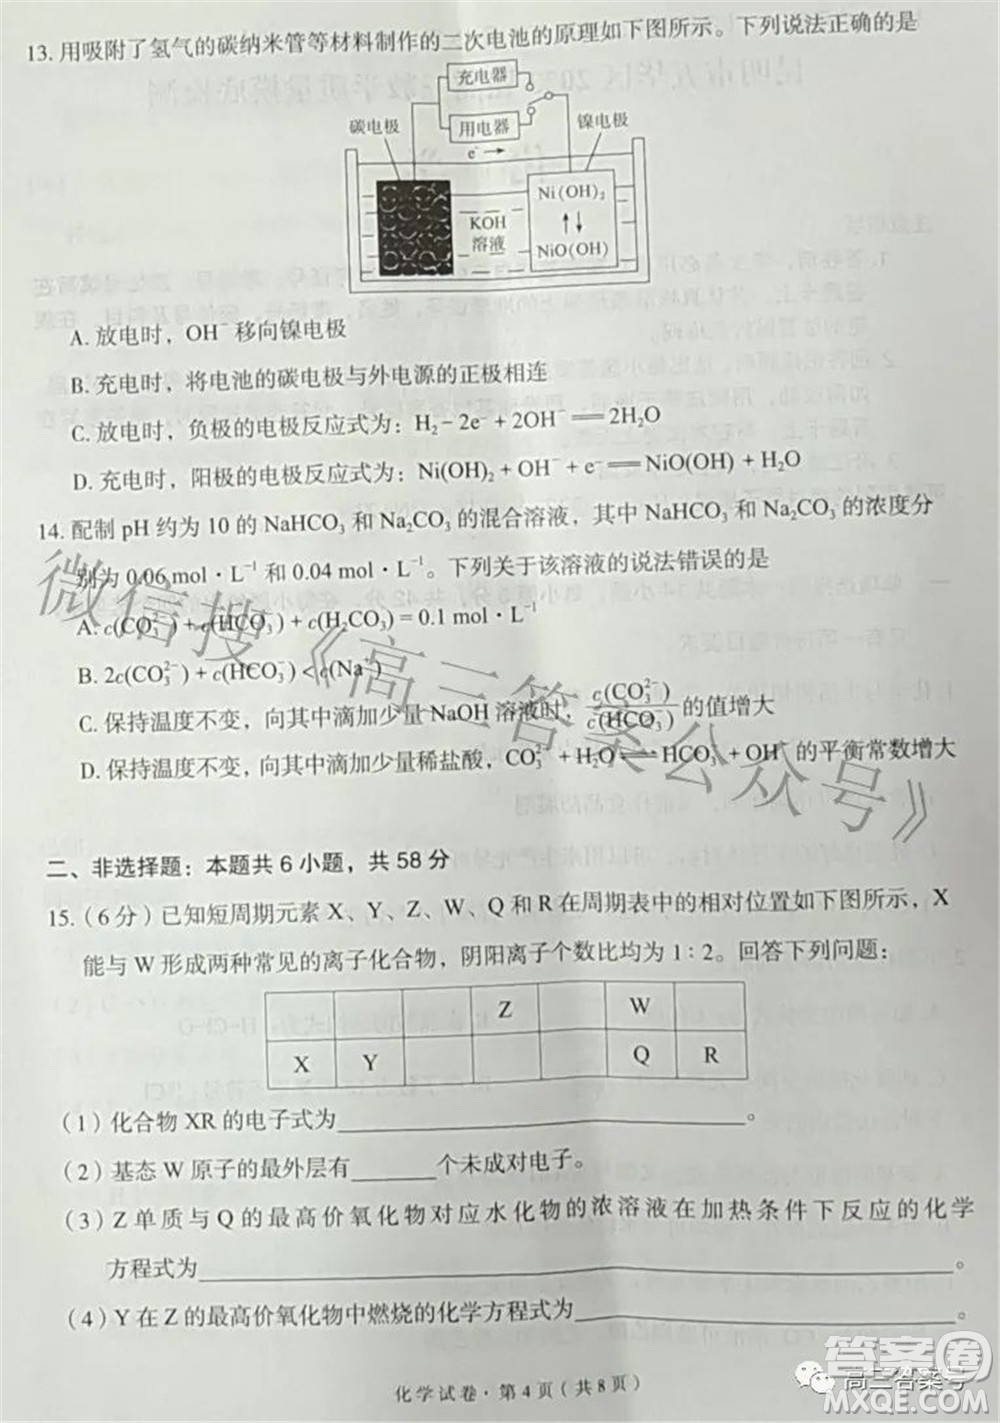 13. 用吸附了氢气的碳纳米管等材料制作的二次电池的原理如下图所示。下列说法正确的是
充电器
碳电极
用电器
镍电极
e⁻
Ni(OH)₂
KOH
溶液
NiO(OH)
A. 放电时，OH⁻ 移向镍电极
B. 充电时，将电池的碳电极与外电源的正极相连
C. 放电时，负极的电极反应式为：H₂－2e⁻＋2OH⁻＝2H₂O
D. 充电时，阳极的电极反应式为：Ni(OH)₂＋OH⁻＋e⁻＝NiO(OH)＋H₂O
14. 配制 pH 约为 10 的 NaHCO₃ 和 Na₂CO₃ 的混合溶液，其中 NaHCO₃ 和 Na₂CO₃ 的浓度分
别为 0.06 mol·L⁻¹ 和 0.04 mol·L⁻¹。下列关于该溶液的说法错误的是
A. c(CO₃²⁻)＋c(HCO₃⁻)＋c(H₂CO₃)＝0.1 mol·L⁻¹
B. 2c(CO₃²⁻)＋c(HCO₃⁻)＜c(Na⁺)
C. 保持温度不变，向其中滴加少量 NaOH 溶液时，c(CO₃²⁻)/c(HCO₃⁻) 的值增大
D. 保持温度不变，向其中滴加少量稀盐酸，CO₃²⁻＋H₂O⇌HCO₃⁻＋OH⁻ 的平衡常数增大
微信搜《高三答案公众号》
二、非选择题：本题共 6 小题，共 58 分
15.（6 分）已知短周期元素 X、Y、Z、W、Q 和 R 在周期表中的相对位置如下图所示，X
能与 W 形成两种常见的离子化合物，阴阳离子个数比均为 1∶2。回答下列问题：
Z W
X Y Q R
（1）化合物 XR 的电子式为____________。
（2）基态 W 原子的最外层有______个未成对电子。
（3）Z 单质与 Q 的最高价氧化物对应水化物的浓溶液在加热条件下反应的化学
方程式为____________。
（4）Y 在 Z 的最高价氧化物中燃烧的化学方程式为____________。
化学试卷·第 4 页（共 8 页）
答案圈
高三答案号
MXQE.COM